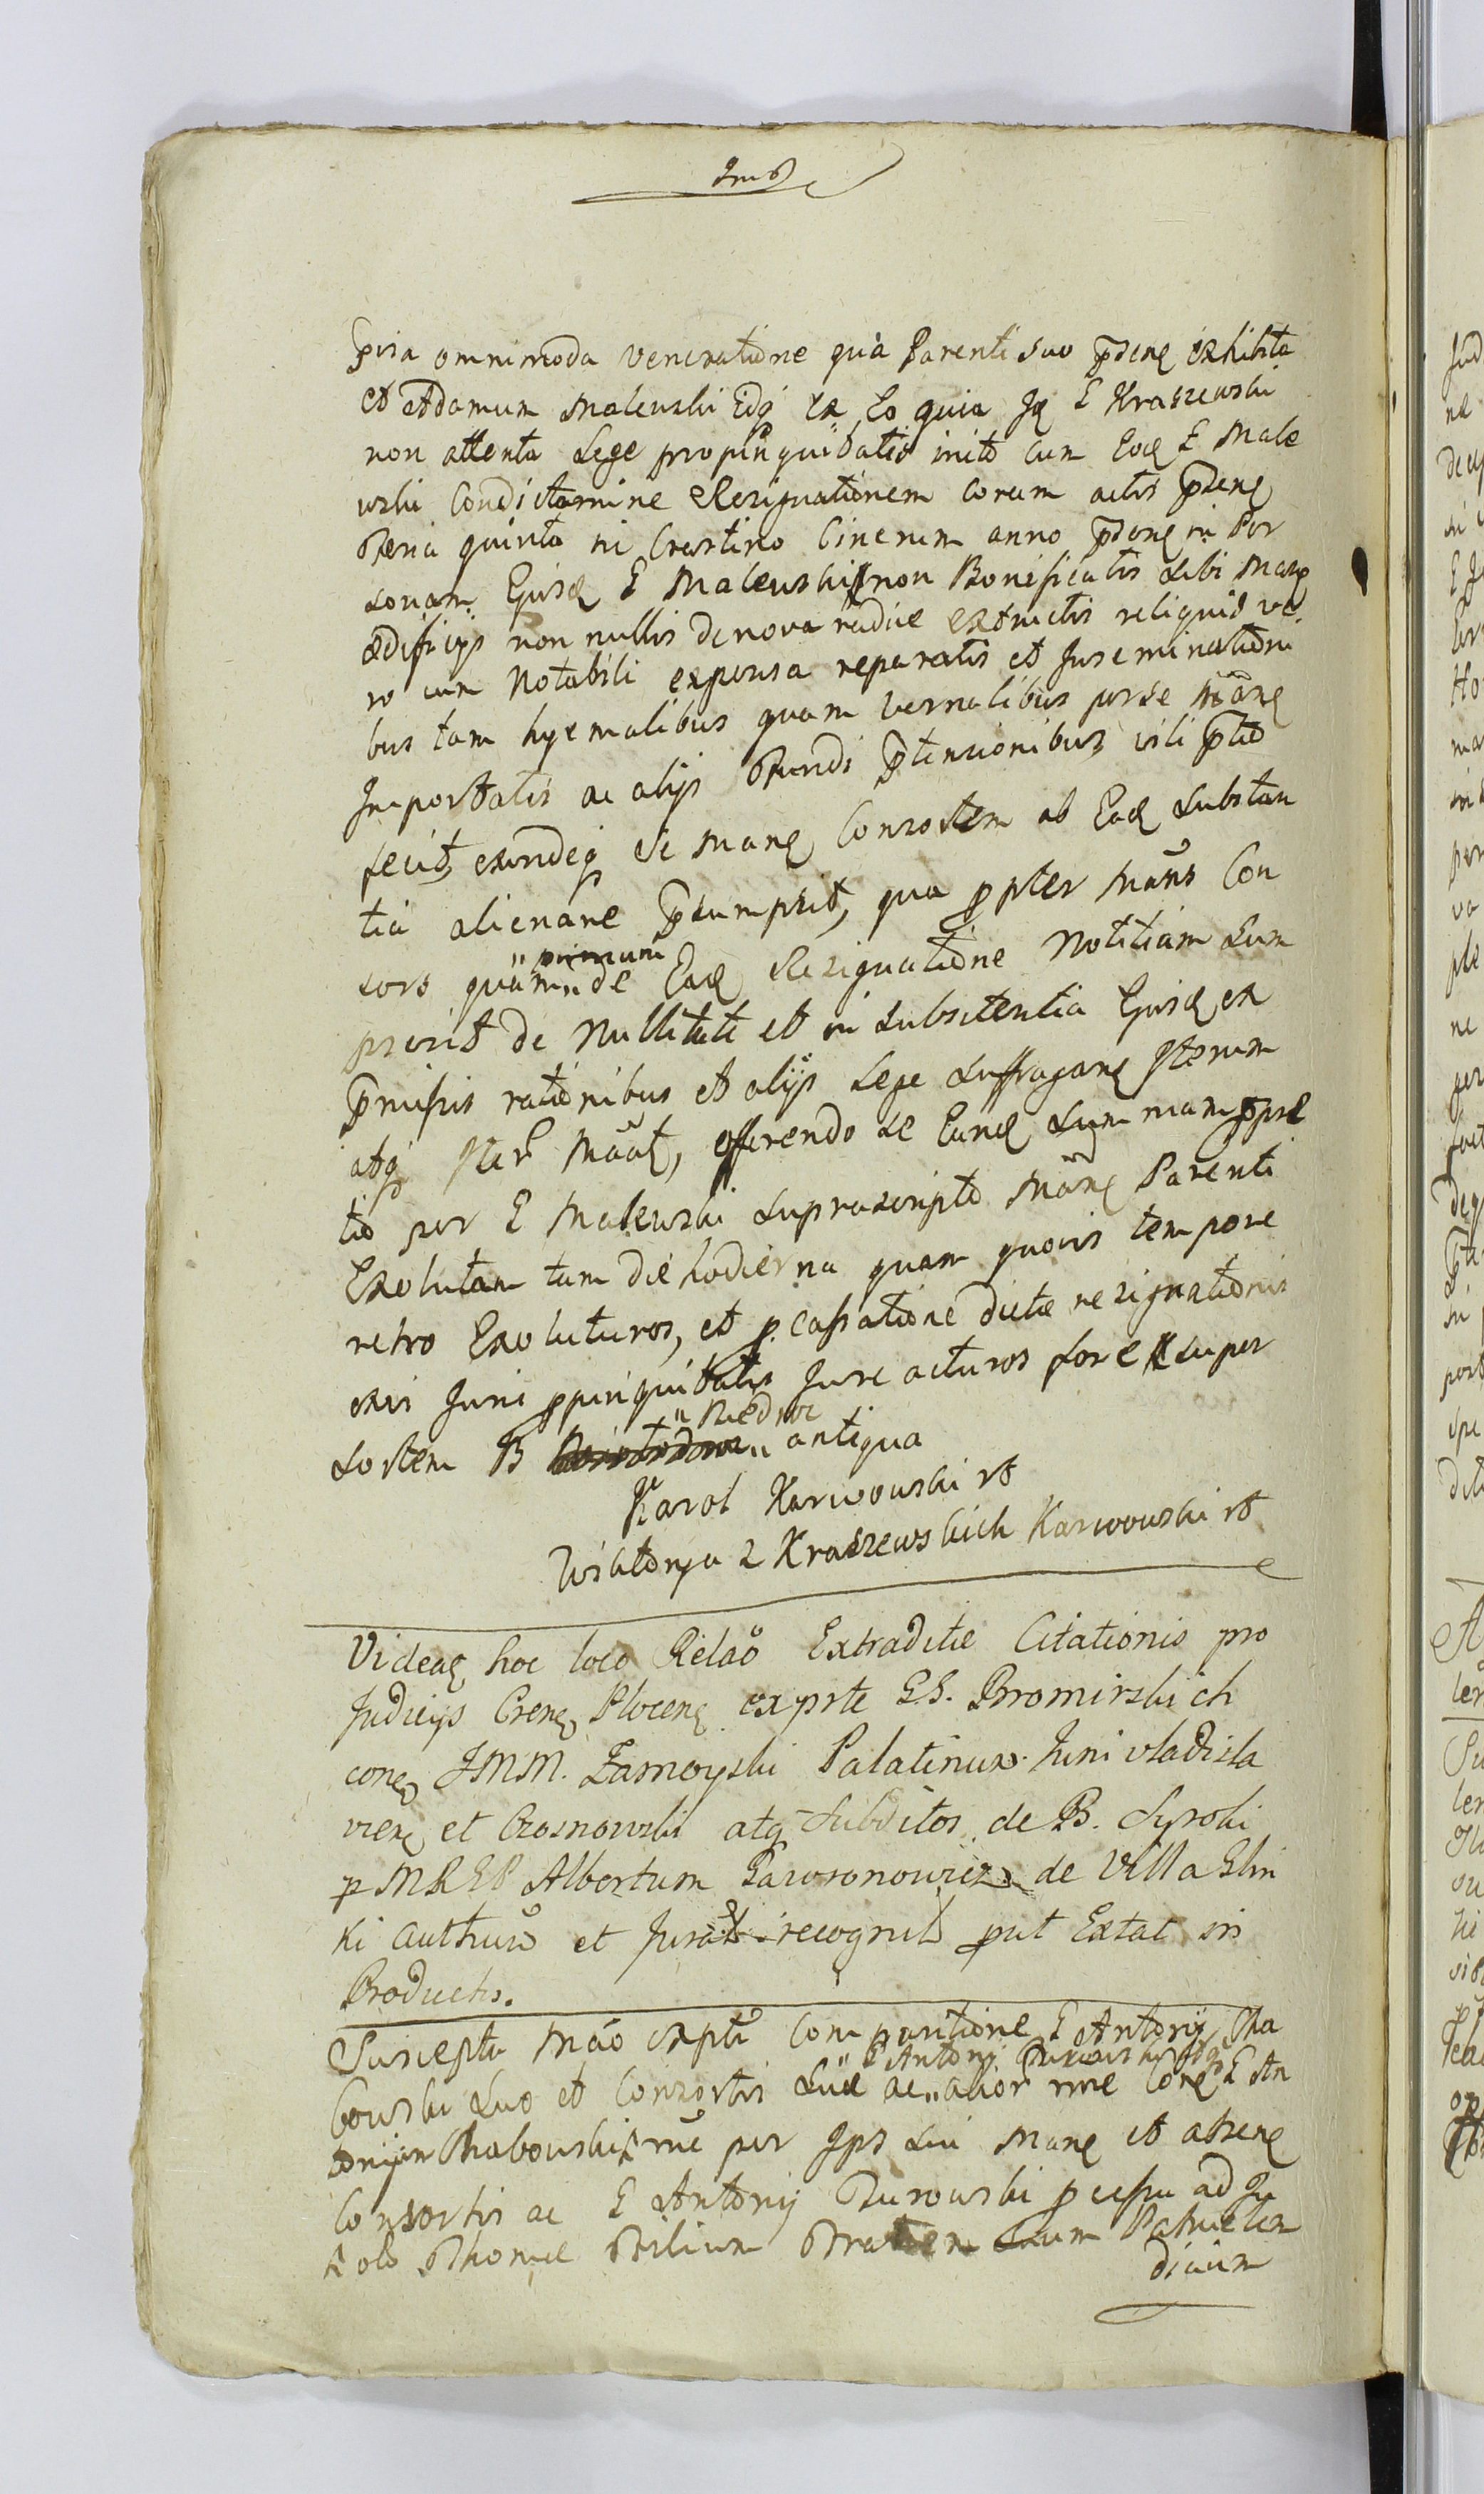 omnimoda veneratione qua Parenti suo pdene exhibita
et Adamum Malewski Idq ex Eo quia Jq E Kraszewski
non attenta Lege propinquitatis inito cum Eod E Male
wski Condictamine Resignationem coram actis pdene
Feria quinta in Crastino Cinerum anno pdene in Per
sonam Ejusd E Malewski non Bonificatis sibi Manq
ædificijs non nullis de nova radice extructis reliquis ve
ro cum Notabili expensa reparatis et Inseminationi
bus tam hyemalibus quam vernalibus per se Manq
Importatis ac alijs Fundi ptensionibus vili ptio
fecit, exindeq se Manq Consortem ab Ead substan
tia alienare psumpsit, qua ppter Mans Con
sors quam „primum„ de Ead Resignatione Notitiam sum
pserit de Nullitate et in subsitentia Ejusd ex
pmissis rationibus et alijs Lege suffragane Iterum
atq Iter Maat, offerendo se Eand summam p ptio
tio per E Malewski supra scripto Manq Parenti
Exolutam tam die hodierna quam quovis tempore
retro Exoluturos, et p. cassatione dictæ resignationis
exis Juri ppinquitatis Jure acturos fore super
sortem B „Niedroz„ antiqua
Karol Karwowski rt
Wiktorya z Kraszewskich Karwowski rt
Videaq hoc loco Relao Extraditæ Citationis pro
Judicijs Crenq Plocenq ex prte G.G. Bromirskich
conq JMM. Zamoyski Palatinum Juni vladisla
vienq et Crosnowski atq Subditos de B. Syroki
p MREP Albertum Gawronowicz de Villa Slin
ki authum et Jurat recognit put Extat in
Productis.
Suscepta Mao scpti Comparitione E Antonij Cha
bowski suo et Consortis suæ ac „E Antonij Burowski„ alior nne Conq E An
tonijum Chabowski nne per Ips sui Manq et absenq
Consortis ac E Antonij Burowski p cessu ad In
Thomæ Filium Fratrem suum Patruelem
dicium